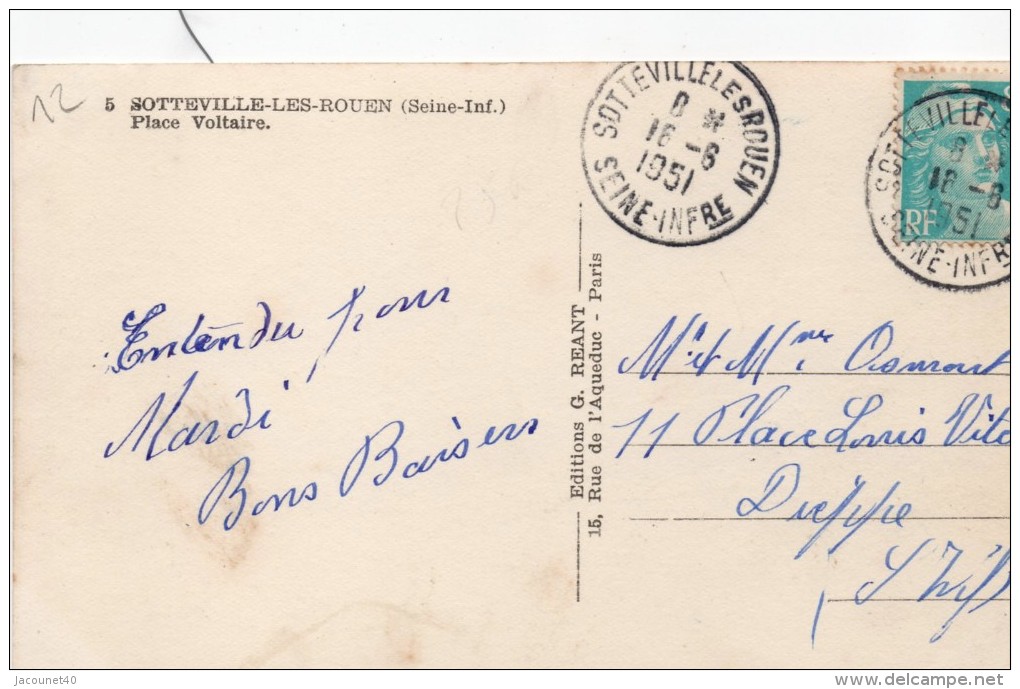 12
5 SOTTEVILLE-LES-ROUEN (Seine-Inf.)
Place Voltaire.
SOTTEVILLE LES ROUEN
8 *
16 -6
1951
SEINE-INFRE
SOTTEVILLE LES R
8 *
16 -6
1951
SEINE-INFRE
RF
Entendu pour
Mardi
Bons Baisers
Editions G. REANT
15, Rue de l'Aqueduc - Paris
Mr et Mme Osmont
11 Place Louis Vite
Dieppe
S Inf
Jacounet40
www.delcampe.net